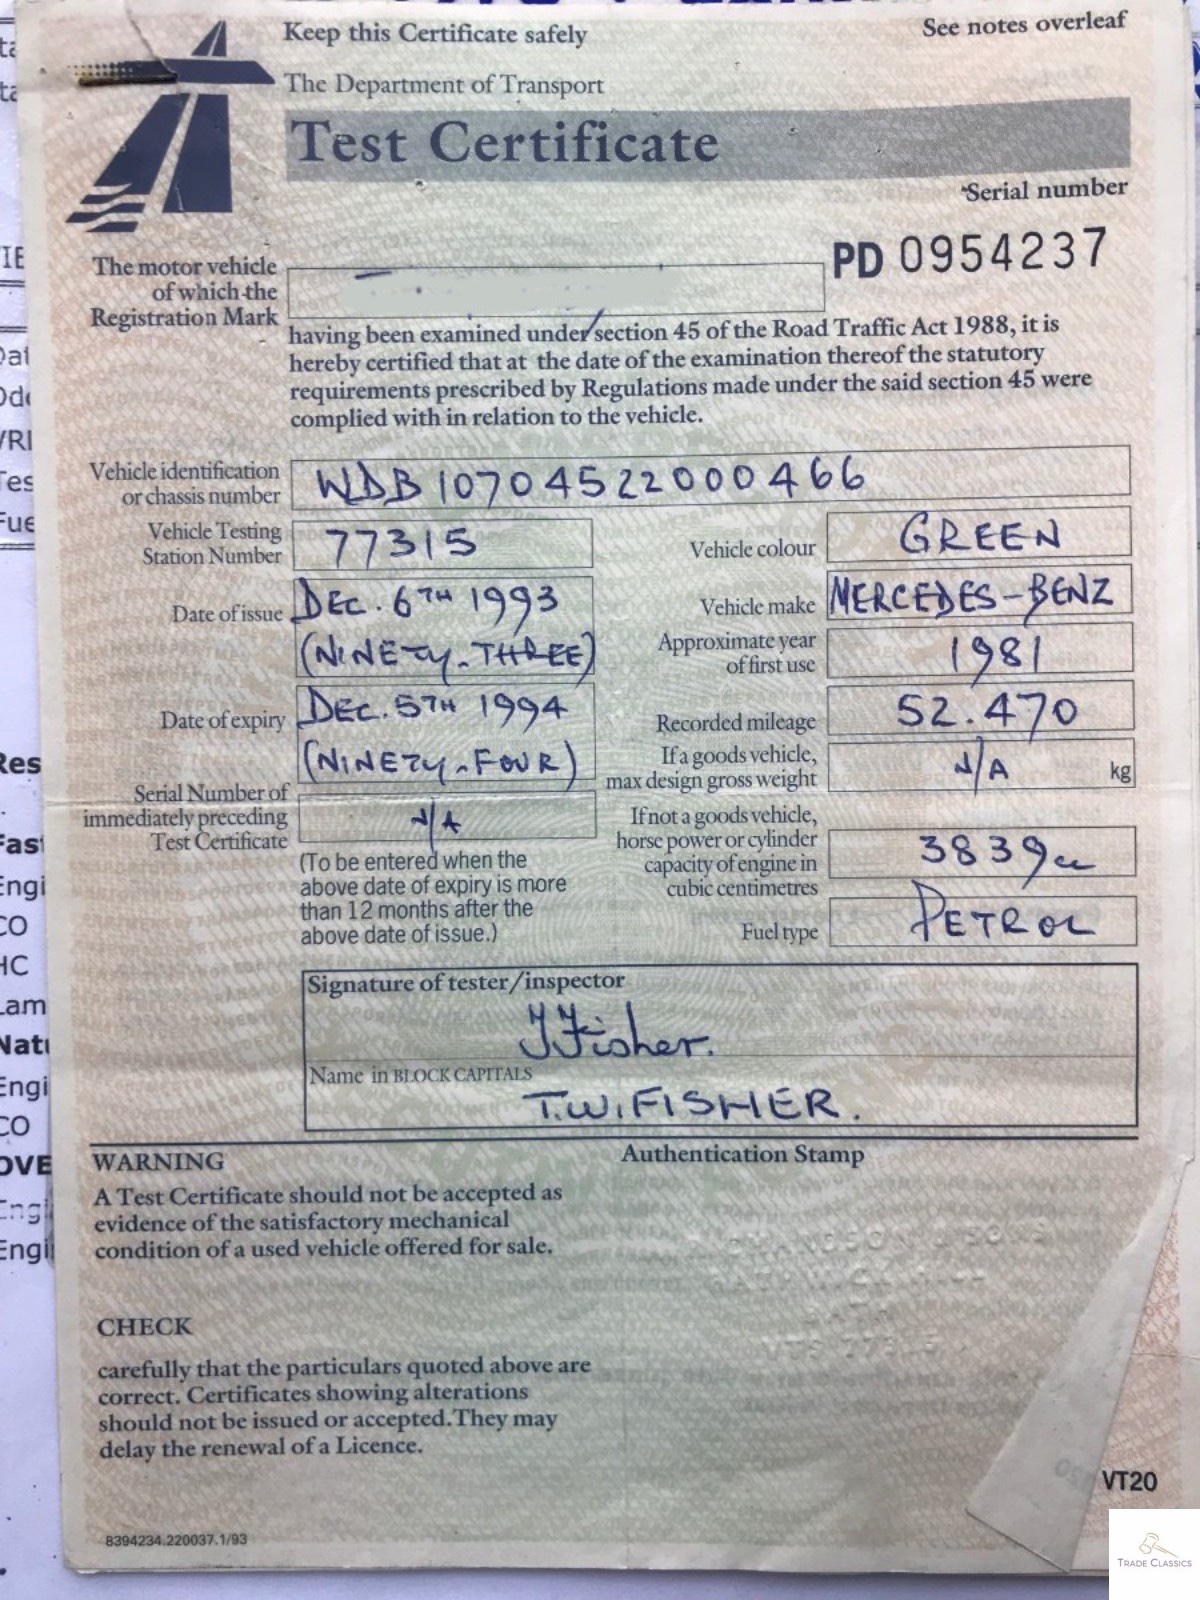 Keep this Certificate safely
See notes overleaf
The Department of Transport
Test Certificate
Serial number
PD 0954237
The motor vehicle
of which the
Registration Mark
having been examined under section 45 of the Road Traffic Act 1988, it is
hereby certified that at the date of the examination thereof the statutory
requirements prescribed by Regulations made under the said section 45 were
complied with in relation to the vehicle.
Vehicle identification
or chassis number
WDB 10704522000466
Vehicle Testing
Station Number
77315
Vehicle colour
GREEN
Date of issue
DEC. 6TH 1993
(NINETY-THREE)
Vehicle make
MERCEDES-BENZ
Approximate year
of first use
1981
Date of expiry
DEC. 5TH 1994
(NINETY-FOUR)
Recorded mileage
52.470
If a goods vehicle,
max design gross weight
N/A
kg
Serial Number of
immediately preceding
Test Certificate
N/A
(To be entered when the
above date of expiry is more
than 12 months after the
above date of issue.)
If not a goods vehicle,
horse power or cylinder
capacity of engine in
cubic centimetres
3839cc
Fuel type
PETROL
Signature of tester/inspector
Fisher.
Name in BLOCK CAPITALS
T.W.FISHER.
WARNING
A Test Certificate should not be accepted as
evidence of the satisfactory mechanical
condition of a used vehicle offered for sale.
Authentication Stamp
VTS 77315
CHECK
carefully that the particulars quoted above are
correct. Certificates showing alterations
should not be issued or accepted. They may
delay the renewal of a Licence.
VT20
8394234.220037.1/93
TRADE CLASSICS
CO
HC
CO